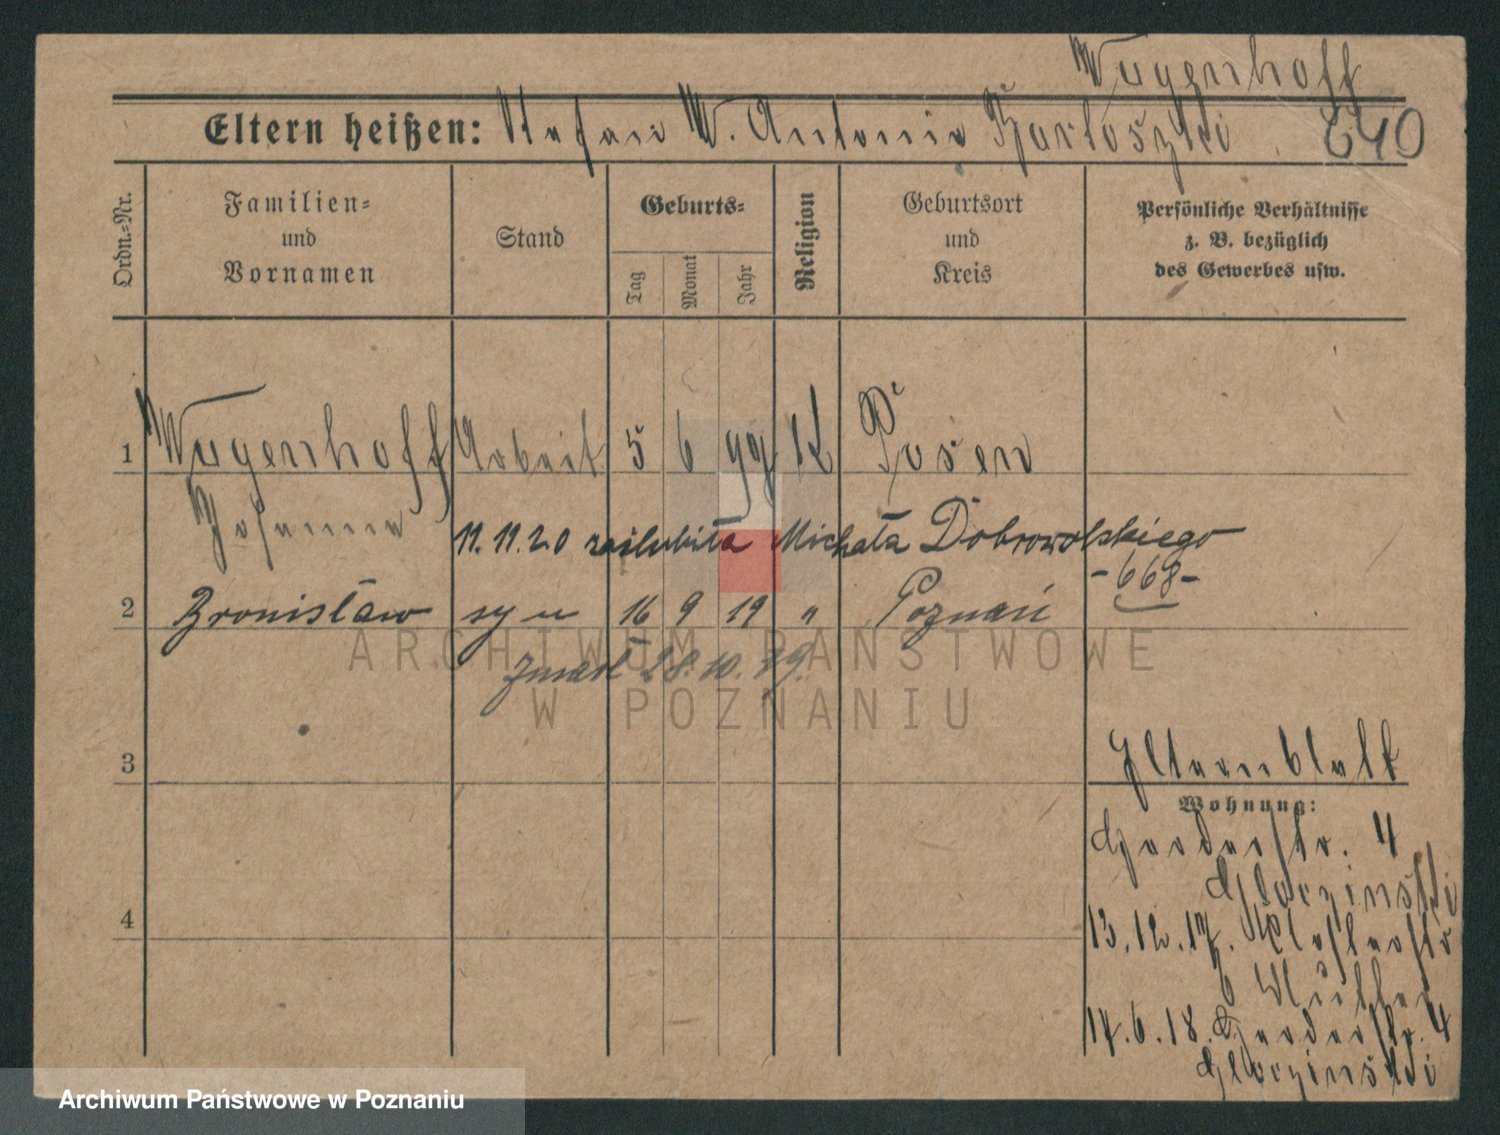 Wegenhoff
Eltern heißen: Stefan W. Antonie Bartoszki 640
Ordn.-Nr.
Familien-
und
Vornamen
Stand
Geburts-
Tag
Monat
Jahr
Religion
Geburtsort
und
Kreis
Persönliche Verhältnisse
z. B. bezüglich
des Gewerbes usw.
1 Wegenhoff Arbeit. 5 6 99 K Posen
Johanna
11.11.20 zaślubiła Michała Dobrowolskiego
-668-
2 Bronisław syn 16 9 19 " Poznań
zmarł 28.10.19.
ARCHIWUM PAŃSTWOWE
W POZNANIU
3
Elternblatt
Wohnung:
4
13.12.17. Klosterstr
6
14.6.18. 4
Archiwum Państwowe w Poznaniu